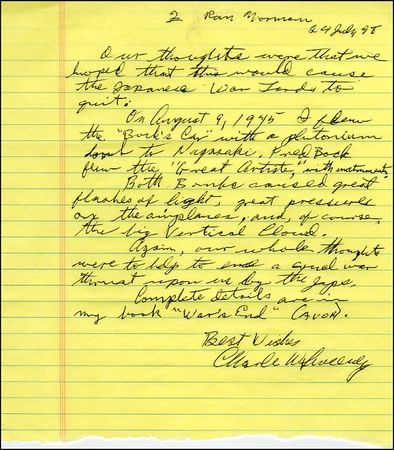 To Ran Norman
24 July 98
Our thoughts were that we
hoped that this would cause
the Japanese War Lords to
quit.
On August 9, 1945 I flew
the "Bock's Car" with a plutonium
bomb to Nagasaki. Fred Bock
flew the "Great Artiste", with instruments.
Both Bombs caused great
flashes of light, great pressures
on the airplanes, and, of course,
the big Vertical Cloud.
Again, our whole thoughts
were to help to end a cruel war
thrust upon us by the Japs.
Complete details are in
my book "War's End" (AVON).
Best Wishes
Charles W Sweeney